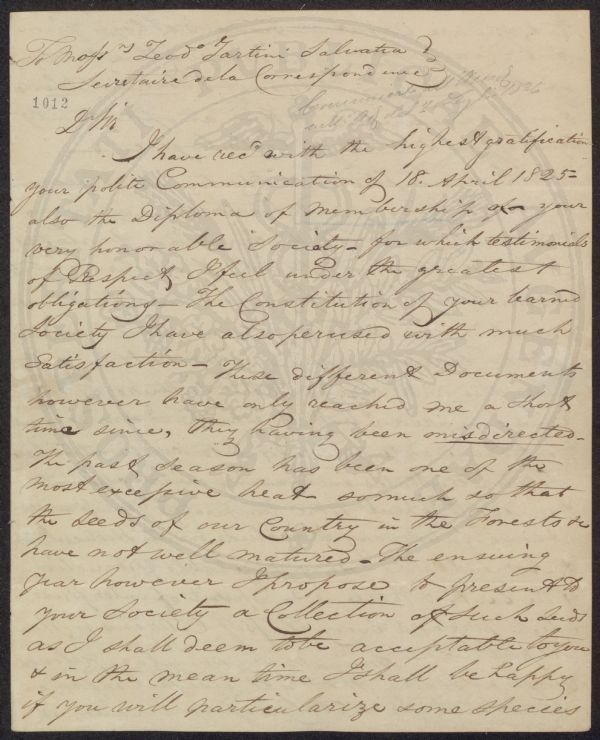 To Moss.rs Teod.o Tartini Salvatici
Secretaire de la Correspondence
1012
D Sir
I have rec.d with the highest gratification
your polite Communication of 18. April 1825 –
also the Diploma of membership of your
very honorable Society – for which testimonials
of Respect, I feel under the greatest
obligations – The Constitution of your learned
Society I have also perused with much
Satisfaction – These different Documents
however have only reached me a short
time since, they having been misdirected –
The past Season has been one of the
most excessive heat so much so that
the Seeds of our Country in the Forests &c
have not well matured – The ensuing
year however I propose to present to
your Society a Collection of such seeds
as I shall deem to be acceptable to you
& in the mean time I shall be happy
if you will particularize some species